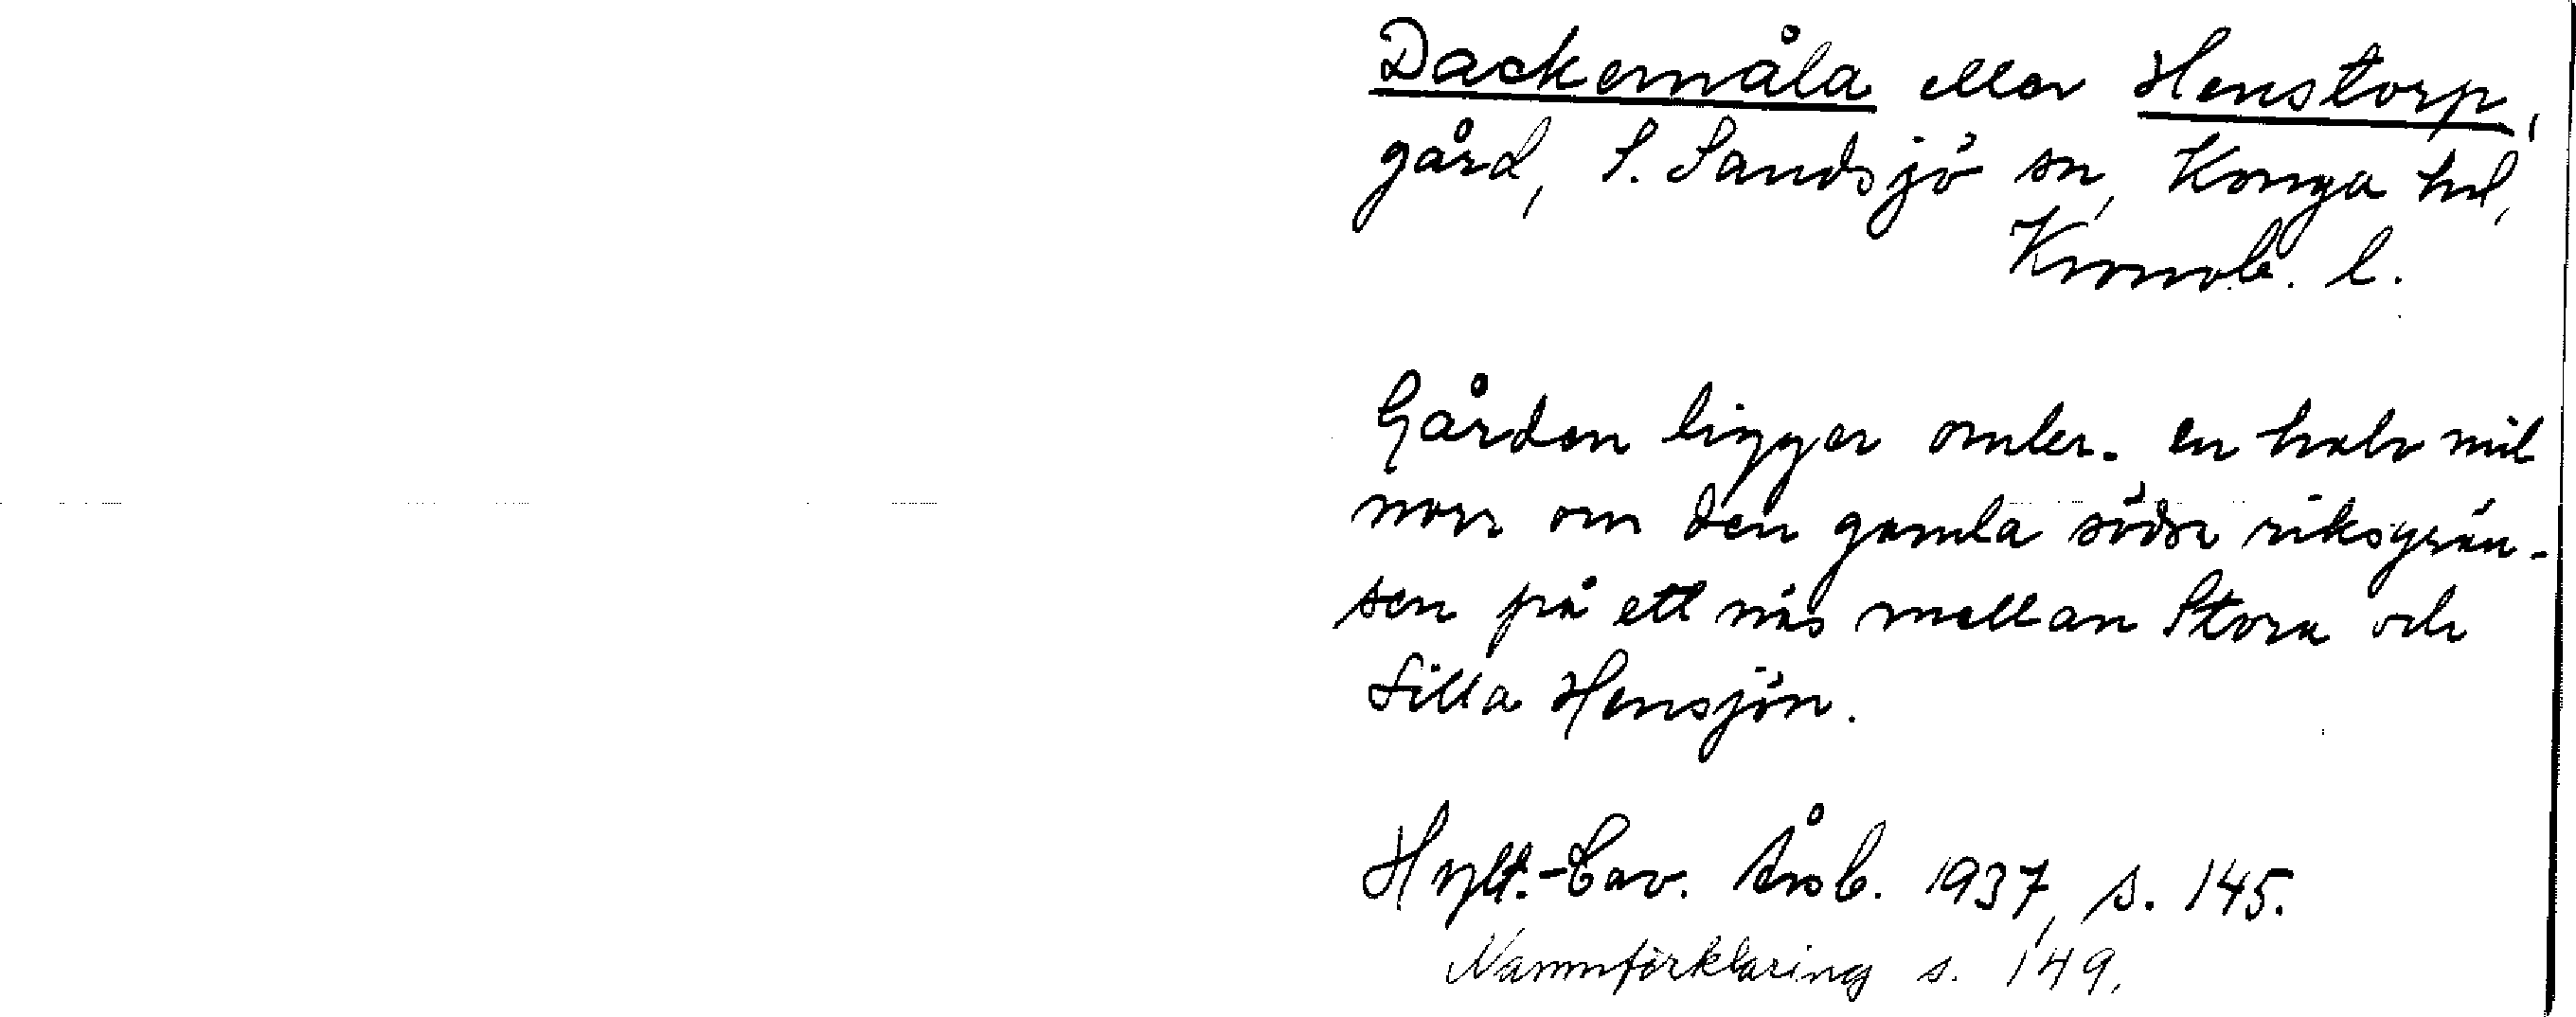 Dackemåla eller Henstorp,
gård, S. Sandsjö sn, Konga hd,
Kronob. l.
Gården ligger omkr. en halv mil
norr om den gamla södra riksgrän-
sen på ett näs mellan Stora och
Lilla Hensjön.
Hylt.-Cav. Årsb. 1937, s. 145.
Namnförklaring s. 149.